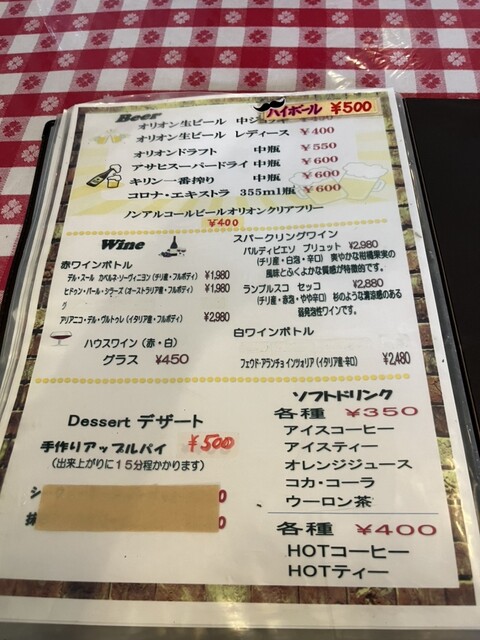 Beer
ハイボール ¥500
オリオン生ビール 中ジョッキ
オリオン生ビール レディース ¥400
オリオンドラフト 中瓶 ¥550
アサヒスーパードライ 中瓶 ¥600
キリン一番搾り 中瓶 ¥600
コロナ・エキストラ 355ml瓶 ¥600
ノンアルコールビールオリオンクリアフリー
¥400
Wine
赤ワインボトル
デル・スール カベルネ・ソーヴィニヨン(チリ産・フルボディ) ¥1,980
ヒドゥン・パール・シラーズ(オーストラリア産・フルボディ) ¥1,980
アリアニコ・デル・ヴルトゥレ(イタリア産・フルボディ) ¥2,980
ハウスワイン(赤・白)
グラス ¥450
スパークリングワイン
バルディビエソ ブリュット ¥2,980
(チリ産・白泡・辛口) 爽やかな柑橘果実の
風味とふくよかな質感が特徴的です。
ランブルスコ セッコ ¥2,880
(チリ産・赤泡・やや辛口) 杉のような清涼感のある
弱発泡性ワインです。
白ワインボトル
フェウド・アランチョ インツォリア(イタリア産・辛口) ¥2,480
Dessert デザート
手作りアップルパイ ¥500
(出来上がりに15分程かかります)
ソフトドリンク
各種 ¥350
アイスコーヒー
アイスティー
オレンジジュース
コカ・コーラ
ウーロン茶
各種 ¥400
HOTコーヒー
HOTティー